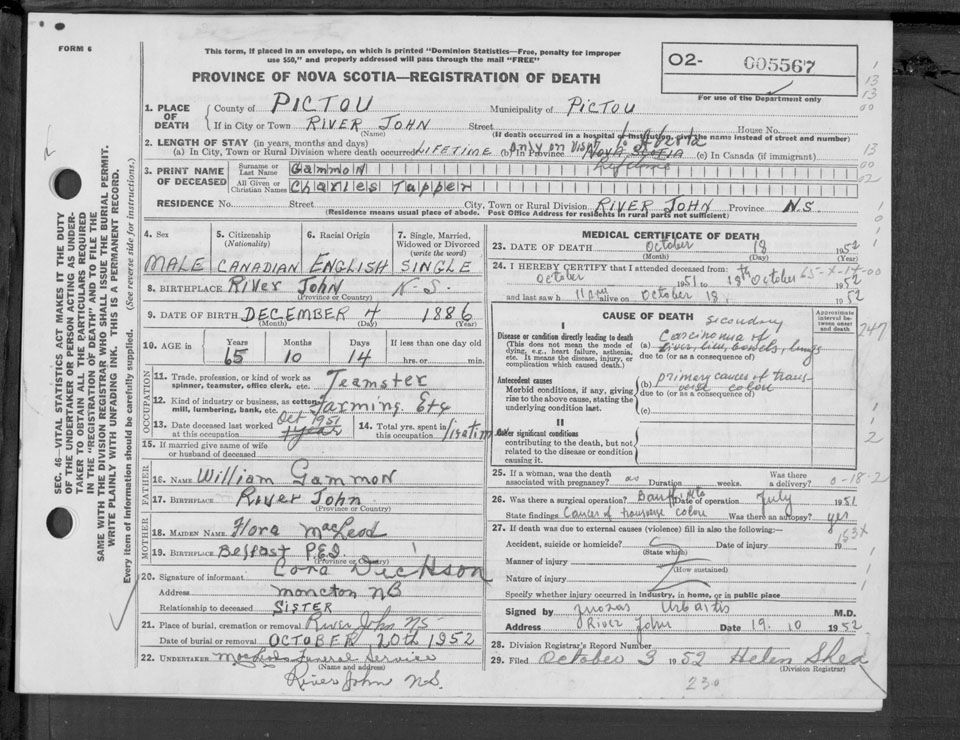 FORM 6
This form, if placed in an envelope, on which is printed "Dominion Statistics—Free, penalty for improper
use $50," and properly addressed will pass through the mail "FREE"
PROVINCE OF NOVA SCOTIA—REGISTRATION OF DEATH
O2- 005567
For use of the Department only
1. PLACE OF DEATH County of PICTOU Municipality of PICTOU
If in City or Town RIVER JOHN Street House No.
(Name) (If death occurred in a hospital or institution, give the name instead of street and number)
2. LENGTH OF STAY (in years, months and days) only on visit to Alberta
(a) In City, Town or Rural Division where death occurred LIFETIME (b) in Province NOVA SCOTIA (c) In Canada (if immigrant)
3. PRINT NAME OF DECEASED Surname or Last Name Gammon
All Given or Christian Names Charles Tupper
RESIDENCE No. Street City, Town or Rural Division RIVER JOHN Province N.S.
(Residence means usual place of abode. Post Office Address for residents in rural parts not sufficient)
4. Sex MALE
5. Citizenship (Nationality) CANADIAN
6. Racial Origin ENGLISH
7. Single, Married, Widowed or Divorced (write the word) SINGLE
8. BIRTHPLACE River John N.S.
(Province or Country)
9. DATE OF BIRTH DECEMBER 4 1886
(Month) (Day) (Year)
10. AGE in Years 65 Months 10 Days 14 If less than one day old hrs. or min.
OCCUPATION
11. Trade, profession, or kind of work as spinner, teamster, office clerk, etc. Teamster
12. Kind of industry or business, as cotton-mill, lumbering, bank, etc. Farming Etc
13. Date deceased last worked at this occupation Oct 1951 1 year
14. Total yrs. spent in this occupation
15. If married give name of wife or husband of deceased
FATHER
16. NAME William Gammon
17. BIRTHPLACE River John
(Province or Country)
MOTHER
18. MAIDEN NAME Flora MacLeod
19. BIRTHPLACE Belfast P.E.I.
(Province or Country)
20. Signature of informant Cora Dickson
Address Moncton NB
Relationship to deceased SISTER
21. Place of burial, cremation or removal River John NS
Date of burial or removal OCTOBER 20th 1952
22. UNDERTAKER MacLeods Funeral Service
(Name and address)
River John N.S.
MEDICAL CERTIFICATE OF DEATH
23. DATE OF DEATH October 18 1952
(Month) (Day)
24. I HEREBY CERTIFY that I attended deceased from:
October 1951 to 18th October 1952
and last saw h alive on October 18. 1952
CAUSE OF DEATH
Approximate interval between onset and death
I
Disease or condition directly leading to death
(This does not mean the mode of dying, e.g., heart failure, asthenia, etc. It means the disease, injury, or complication which caused death.)
secondary
(a) Carcinoma of
liver, bowels, lungs
due to (or as a consequence of)
Antecedent causes
Morbid conditions, if any, giving rise to the above cause, stating the underlying condition last.
(b) primary cancer of transverse colon
due to (or as a consequence of)
(c)
247
II
Other significant conditions
contributing to the death, but not related to the disease or condition causing it.
25. If a woman, was the death associated with pregnancy? Duration weeks. Was there a delivery?
26. Was there a surgical operation? Date of operation July 1951
State findings Cancer of transverse colon Was there an autopsy? yes
153x
27. If death was due to external causes (violence) fill in also the following:
Accident, suicide or homicide? Date of injury 19
(State which)
Manner of injury
(How sustained)
Nature of injury
Specify whether injury occurred in industry, in home, or in public place
Signed by Juozas Urbaitis M.D.
Address River John Date 19. 10 1952
28. Division Registrar's Record Number
29. Filed October 3 1952 Helen Shea
(Division Registrar)
230
SEC. 46—VITAL STATISTICS ACT MAKES IT THE DUTY
OF THE UNDERTAKER OR PERSON ACTING AS UNDER-
TAKER TO OBTAIN ALL THE PARTICULARS REQUIRED
IN THE "REGISTRATION OF DEATH" AND TO FILE THE
SAME WITH THE DIVISION REGISTRAR WHO SHALL ISSUE THE BURIAL PERMIT.
WRITE PLAINLY WITH UNFADING INK. THIS IS A PERMANENT RECORD.
Every item of information should be carefully supplied. (See reverse side for instructions.)